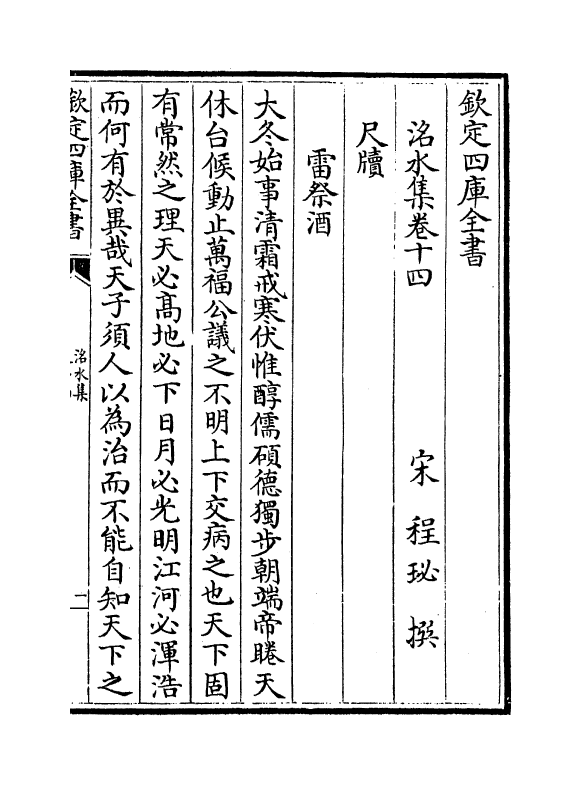 欽定四庫全書
洺水集卷十四
宋　程珌　撰
尺牘
雷祭酒
大冬始事清霜戒寒伏惟醇儒碩德獨步朝端帝睠天
休台候動止萬福公議之不明上下交病之也天下固
有常然之理天必高地必下日月必光明江河必渾浩
而何有於異哉天子須人以為治而不能自知天下之
欽定四庫全書
洺水集